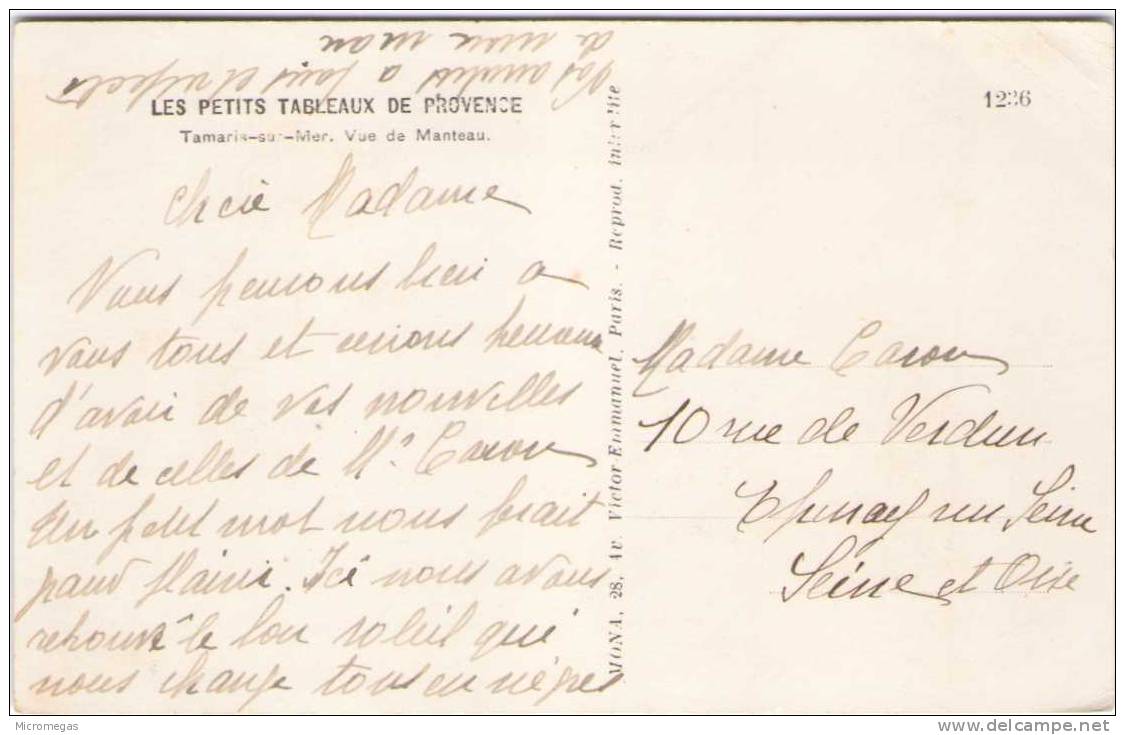 LES PETITS TABLEAUX DE PROVENCE
Tamaris-sur-Mer. Vue de Manteau.
1236
Chère Madame
Nous pensons bien a
vous tous et serions heureux
d'avoir de vos nouvelles
et de celles de Mr Caron
Un petit mot nous ferait
grand plaisir. Ici nous avons
retrouvé le bon soleil qui
nous change tous en nègres
a mon man
MONA, 28, Av. Victor-Emmanuel, Paris. - Reprod. interdite
Madame Caron
10 rue de Verdun
Epinay sur Seine
Seine et Oise
Micromegas
www.delcampe.net